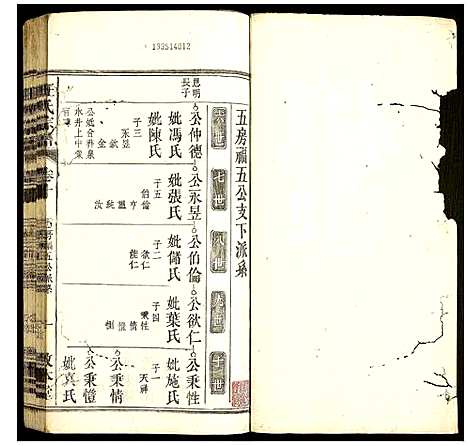 193514012
五房福五公支下派系
六世
七世
八世
九世
十世
思明
長子
公仲德
妣馮氏
妣陳氏
子三
永昱
欽
金
公妣合葬泉
水井上中棠
公永昱
妣張氏
子五
伯倫
公伯倫
妣儲氏
子二
欲仁
能仁
公欲仁
妣葉氏
子四
秉性
情
愷
公秉性
妣施氏
子一
天祥
公秉情
公秉愷
妣袁氏
氏宗譜
卷十
五房福五公派系
一
敦本堂